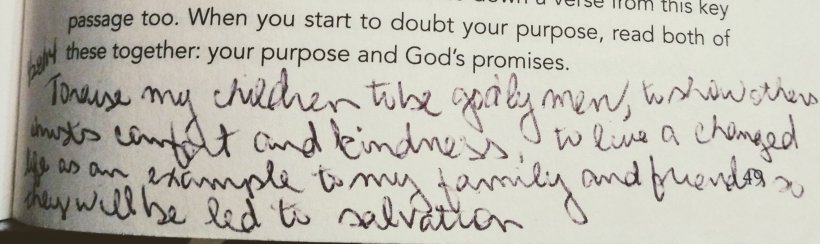 down a verse from this key
passage too. When you start to doubt your purpose, read both of
these together: your purpose and God's promises.
To raise my children to be godly men, to show others
christs comfort and kindness, to live a changed
life as an example to my family and friends so
49
they will be led to salvation